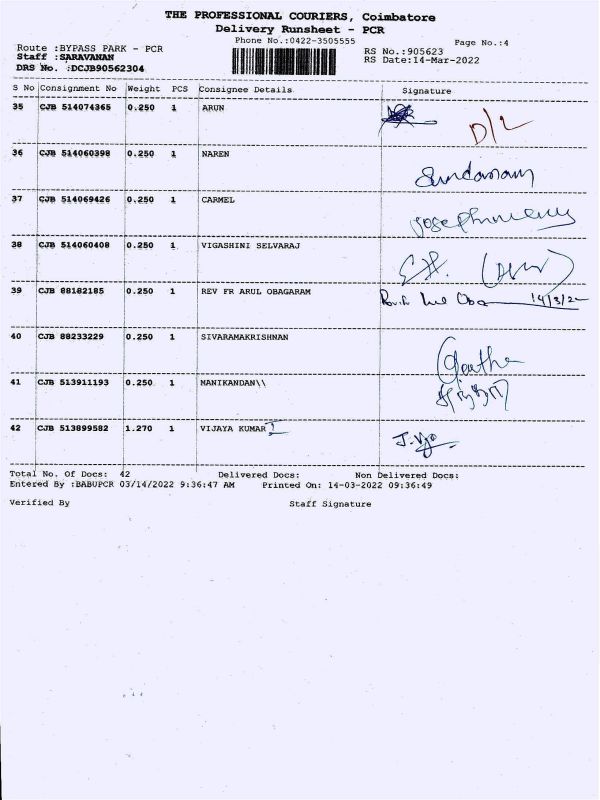 THE PROFESSIONAL COURIERS, Coimbatore
Delivery Runsheet - PCR
Phone No.:0422-3505555
Page No.:4
Route :BYPASS PARK - PCR
RS No.:905623
Staff :SARAVANAN
RS Date:14-Mar-2022
DRS No. :DCJB90562304
S No Consignment No Weight PCS Consignee Details Signature
35 CJB 514074365 0.250 1 ARUN D/L
36 CJB 514060398 0.250 1 NAREN Sundaram
37 CJB 514069426 0.250 1 CARMEL
38 CJB 514060408 0.250 1 VIGASHINI SELVARAJ
39 CJB 88182185 0.250 1 REV FR ARUL OBAGARAM 14/3/22
40 CJB 88233229 0.250 1 SIVARAMAKRISHNAN Geetha
41 CJB 513911193 0.250 1 MANIKANDAN\\
42 CJB 513899582 1.270 1 VIJAYA KUMAR J J.Vijo
Total No. Of Docs: 42 Delivered Docs: Non Delivered Docs:
Entered By :BABUPCR 03/14/2022 9:36:47 AM Printed On: 14-03-2022 09:36:49
Verified By Staff Signature